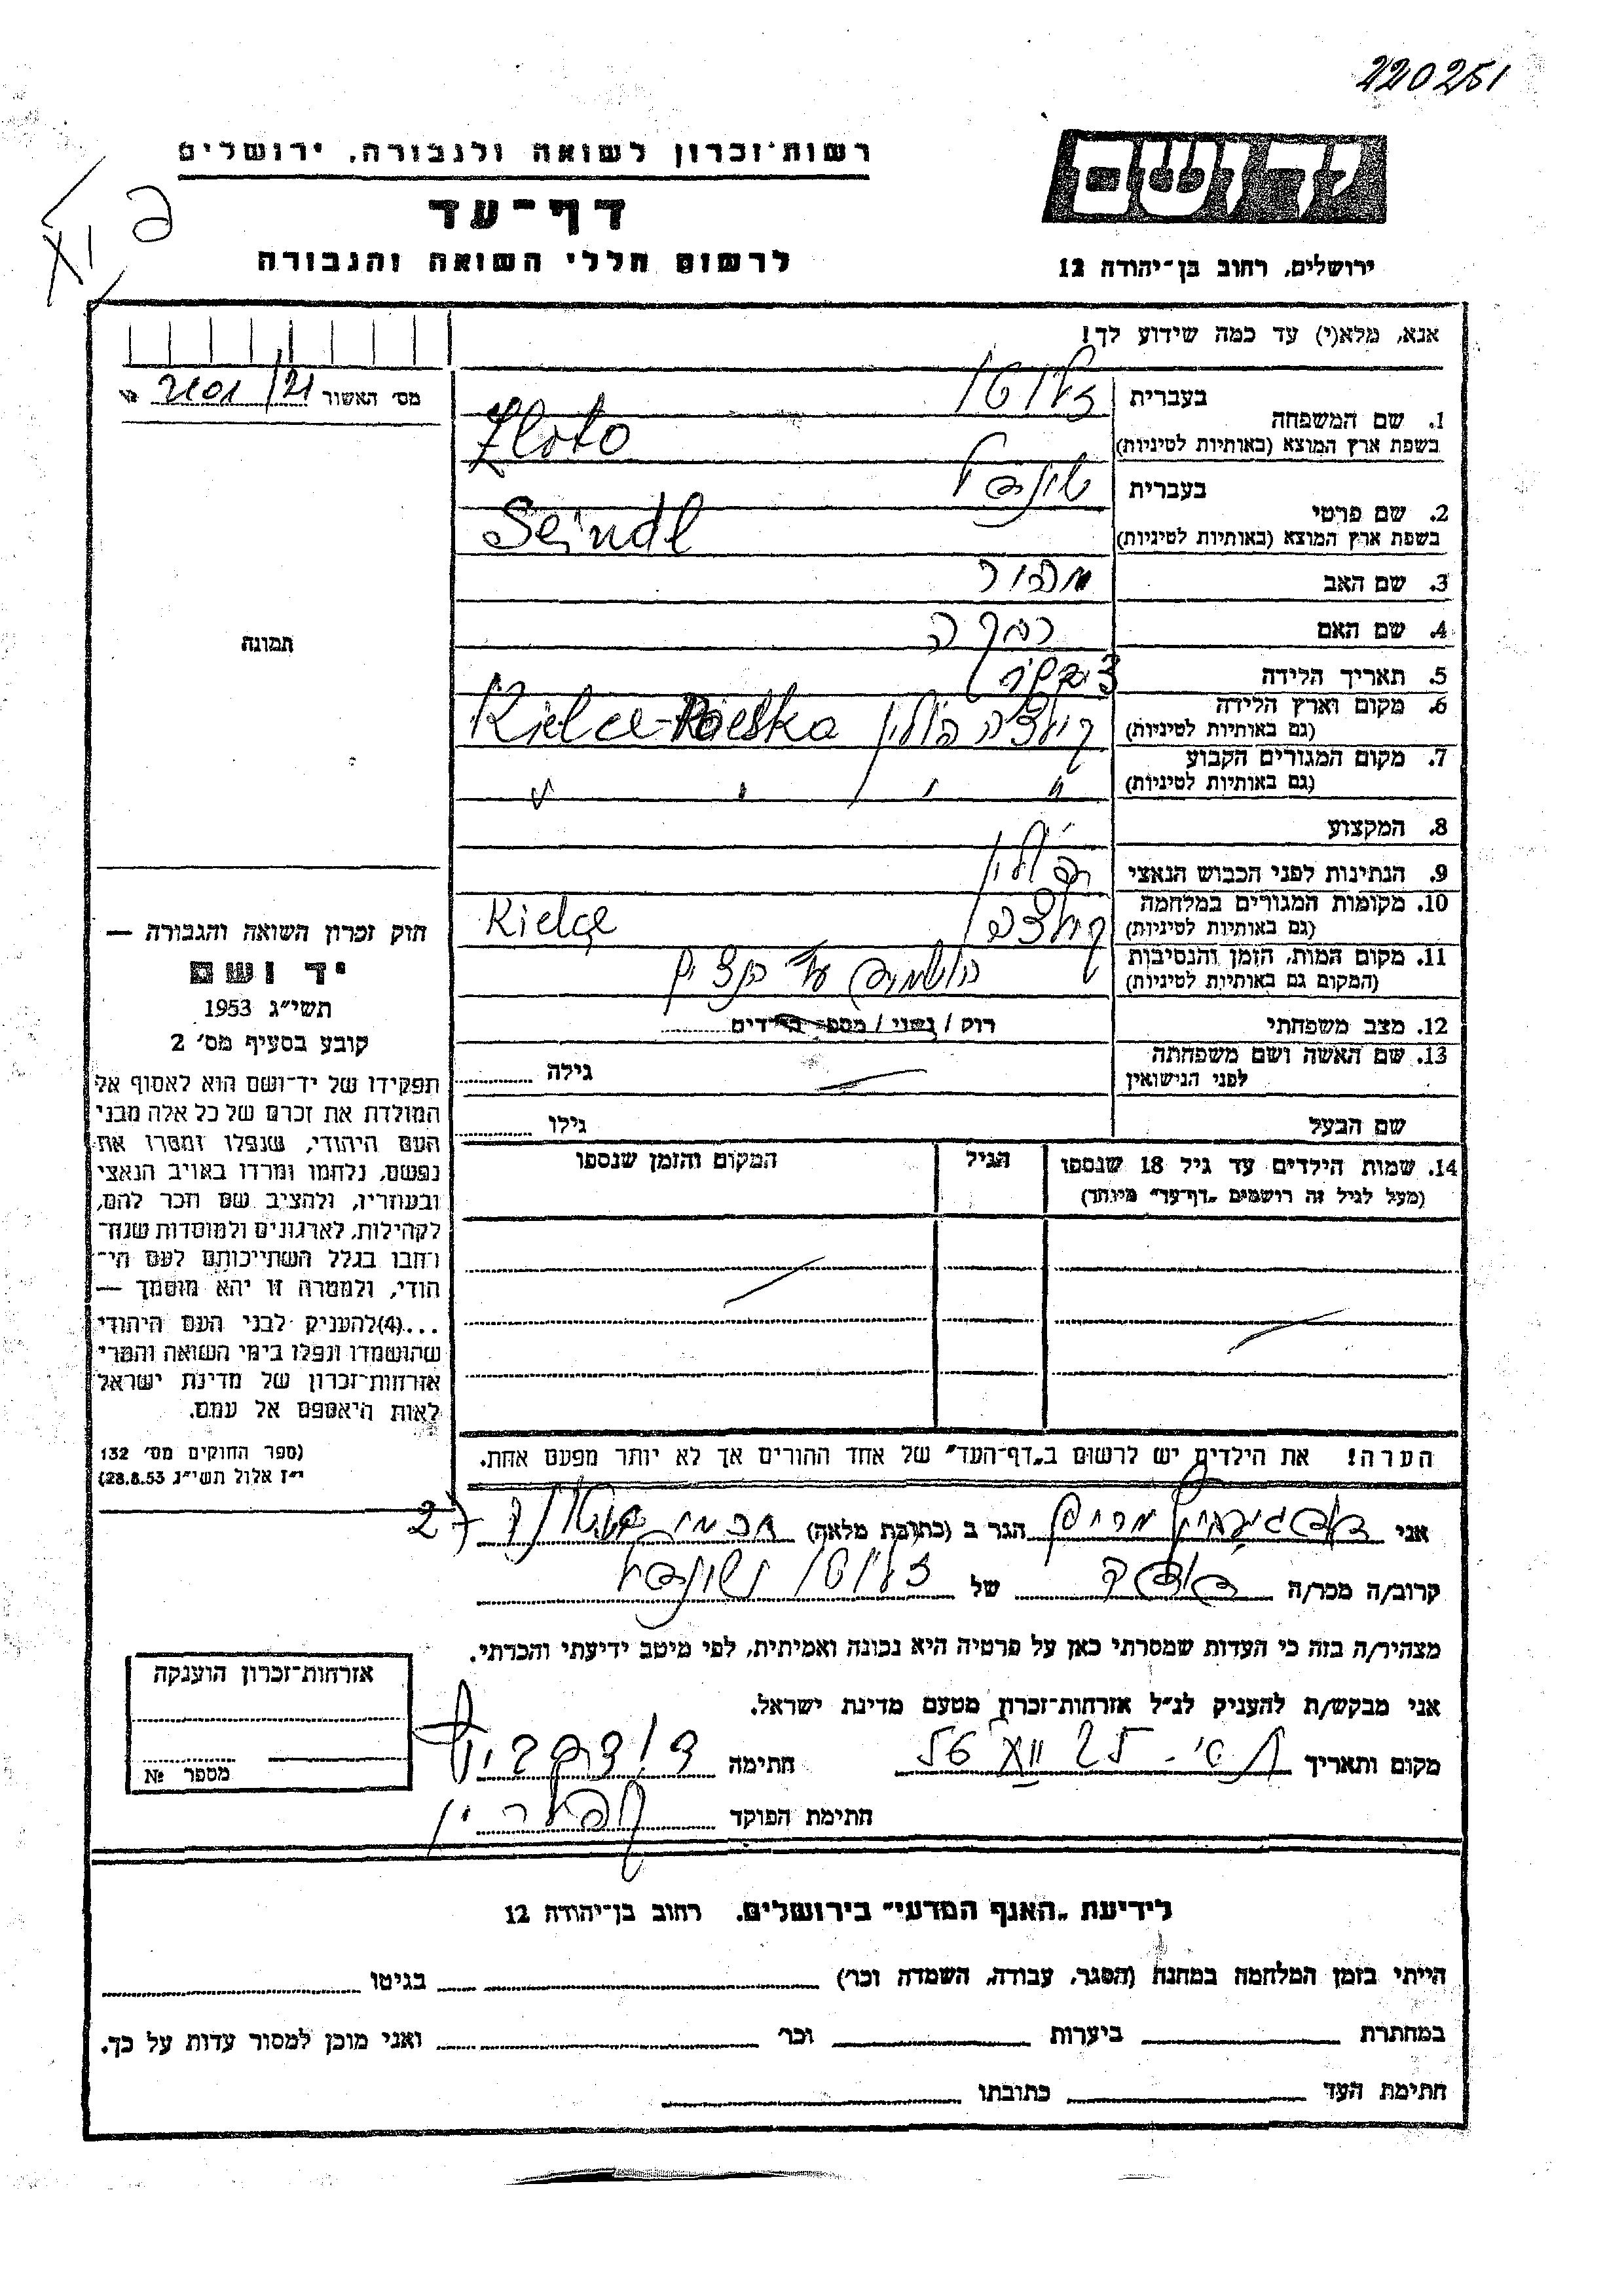 220251
רשות־זכרון לשואה ולגבורה, ירושלים
דף־עד
לרשום חללי השואה והגבורה
יד ושם
ירושלים, רחוב בן־יהודה 12
אנא, מלא(י) עד כמה שידוע לך!
מס׳ האשור 21/
1. שם המשפחה
בעברית זלוטו
בשפת ארץ המוצא (באותיות לטיניות) Zloto
2. שם פרטי
בעברית
בשפת ארץ המוצא (באותיות לטיניות) Seindl
3. שם האב
4. שם האם רבקה
5. תאריך הלידה
6. מקום וארץ הלידה
(גם באותיות לטיניות) קילצה פולין Kielce-Polska
7. מקום המגורים הקבוע
(גם באותיות לטיניות) " " " "
8. המקצוע
9. הנתינות לפני הכבוש הנאצי פולין
10. מקומות המגורים במלחמה
(גם באותיות לטיניות) קילצה Kielce
11. מקום המות, הזמן והנסיבות
(המקום גם באותיות לטיניות)
12. מצב משפחתי רוק / נשוי / מספר הילדים
13. שם האשה ושם משפחתה
לפני הנישואין
גילה
שם הבעל גילו
14. שמות הילדים עד גיל 18 שנספו הגיל המקום והזמן שנספו
(מעל לגיל זה רושמים „דף־עד״ מיוחד)
הערה! את הילדים יש לרשום ב„דף־העד״ של אחד ההורים אך לא יותר מפעם אחת.
תמונה
חוק זכרון השואה והגבורה —
יד ושם
תשי״ג 1953
קובע בסעיף מס׳ 2
תפקידו של יד־ושם הוא לאסוף אל
המולדת את זכרם של כל אלה מבני
העם היהודי, שנפלו ומסרו את
נפשם, נלחמו ומרדו באויב הנאצי
ובעוזריו, ולהציב שם וזכר להם,
לקהילות, לארגונים ולמוסדות שנח־
רחבו בגלל השתייכותם לעם הי־
הודי, ולמטרה זו יהא מוסמך —
...(4)להעניק לבני העם היהודי
שהושמדו ונפלו בימי השואה והמרי
אזרחות־זכרון של מדינת ישראל
לאות היאספם אל עמם.
(ספר החוקים מס׳ 132
י״ז אלול תשי״ג 28.8.53)
אני הגר ב (כתובת מלאה)
קרוב/ה מכר/ה של זלוטו
מצהיר/ה בזה כי העדות שמסרתי כאן על פרטיה היא נכונה ואמיתית, לפי מיטב ידיעתי והכרתי.
אני מבקש/ת להעניק לנ״ל אזרחות־זכרון מטעם מדינת ישראל.
מקום ותאריך חתימה
חתימת הפוקד
אזרחות־זכרון הוענקה
מספר №
לידיעת „האגף המדעי״ בירושלים. רחוב בן־יהודה 12
הייתי בזמן המלחמה במחנה (הסגר, עבודה, השמדה וכר׳) בגיטו
במחתרת ביערות וכר׳ ואני מוכן למסור עדות על כך.
חתימת העד כתובתו